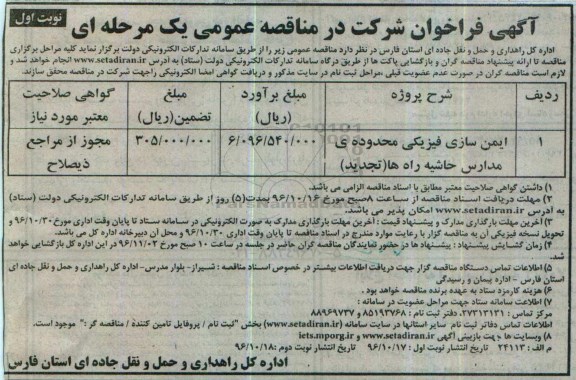 نوبت اول
آگهی فراخوان شرکت در مناقصه عمومی یک مرحله ای
اداره کل راهداری و حمل و نقل جاده ای استان فارس در نظر دارد مناقصه عمومی زیر را از طریق سامانه تدارکات الکترونیکی دولت برگزار نماید کلیه مراحل برگزاری
مناقصه تا ارائه پیشنهاد مناقصه گران و بازگشایی پاکت ها از طریق درگاه سامانه تدارکات الکترونیکی دولت (ستاد) به آدرس www.setadiran.ir انجام خواهد شد و
لازم است مناقصه گران در صورت عدم عضویت قبلی ،مراحل ثبت نام در سایت مذکور و دریافت گواهی امضا الکترونیکی راجهت شرکت در مناقصه محقق سازند.
ردیف
شرح پروژه
مبلغ برآورد (ریال)
مبلغ تضمین(ریال)
گواهی صلاحیت معتبر مورد نیاز
۱
ایمن سازی فیزیکی محدوده ی مدارس حاشیه راه ها(تجدید)
۶/۰۹۶/۵۴۰/۰۰۰
۳۰۵/۰۰۰/۰۰۰
مجوز از مراجع ذیصلاح
۱) داشتن گواهی صلاحیت معتبر مطابق با اسناد مناقصه الزامی می باشد.
۲) مهلت دریافت اسناد مناقصه از ساعت ۸صبح مورخ ۹۶/۱۰/۱۶ بمدت(۵) روز از طریق سامانه تدارکات الکترونیکی دولت (ستاد)
به آدرس www.setadiran.ir امکان پذیر می باشد.
۳) آخرین مهلت بارگذاری مدارک و پیشنهاد قیمت : آخرین مهلت بارگذاری مدارک به صورت الکترونیکی در سامانه ستاد تا پایان وقت اداری مورخ ۹۶/۱۰/۳۰ و
تحویل نسخه فیزیکی آن به مناقصه گزار با رعایت موارد مندرج در اسناد مناقصه تا پایان وقت اداری ۹۶/۱۰/۳۰ و محل آن دبیرخانه اداره کل می باشد.
۴) زمان گشایش پیشنهاد : پیشنهاد ها در حضور نمایندگان مناقصه گران حاضر در جلسه در ساعت ۱۰ صبح مورخ ۹۶/۱۱/۰۲ در این اداره کل بازگشایی خواهد
شد.
۵) اطلاعات تماس دستگاه مناقصه گزار جهت دریافت اطلاعات بیشتر در خصوص اسناد مناقصه : شیراز- بلوار مدرس- اداره کل راهداری و حمل و نقل جاده ای
استان فارس - اداره پیمان و رسیدگی
۶) هزینه کارمزد ستاد به عهده برنده مناقصه خواهد بود .
۷) اطلاعات سامانه ستاد جهت مراحل عضویت در سامانه :
مرکز تماس : ۲۷۳۱۳۱۳۱، دفتر ثبت نام : ۸۵۱۹۳۷۶۸ و ۸۸۹۶۹۷۳۷
اطلاعات تماس دفاتر ثبت نام سایر استانها در سایت سامانه (www.setadiran.ir) بخش "ثبت نام / پروفایل تامین کننده / مناقصه گر:" موجود است.
۸) وبسایت ها جهت بازبینی آگهی www.setadiran.ir و iets.mporg.ir
م الف : ۲۴۱۱۳ تاریخ انتشار نوبت اول : ۹۶/۱۰/۱۷ تاریخ انتشار نوبت دوم :۹۶/۱۰/۱۸
اداره کل راهداری و حمل و نقل جاده ای استان فارس